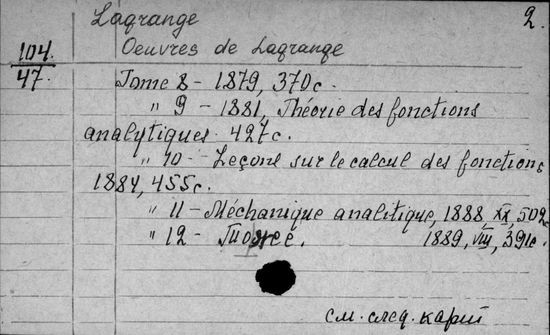 Lagrange
2.
Oeuvres de Lagrange
104.
47.
Tome 8 - 1879, 370с.
" 9 - 1881, Théorie des fonctions
analytiques. 427с.
" 10 - Leçons sur le calcul des fonctions
1884, 455с.
" 11 - Méchanique analitique, 1888 XX, 502с
" 12 - 1889, VIII, 391с.
см. след. карт